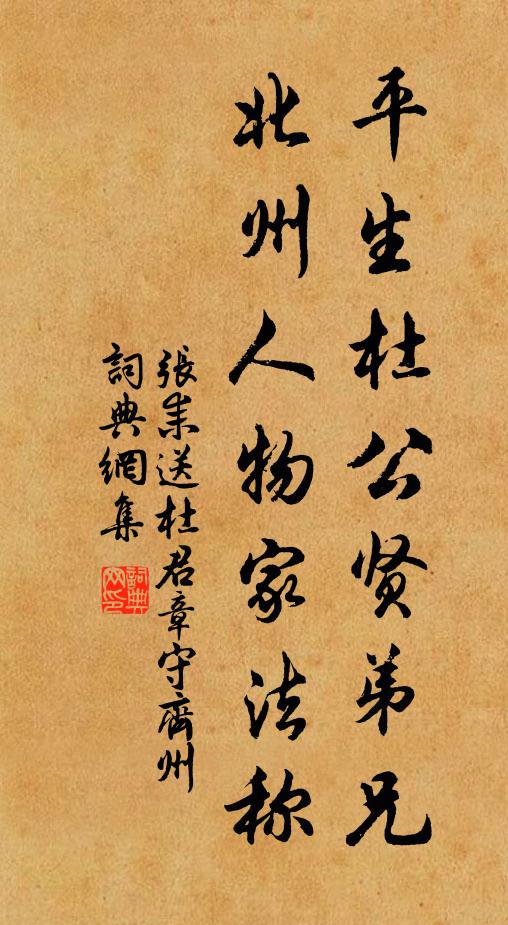 平生杜公贤弟兄
北州人物家法称
張耒送杜君章守齊州
詞典網集
詞典网印